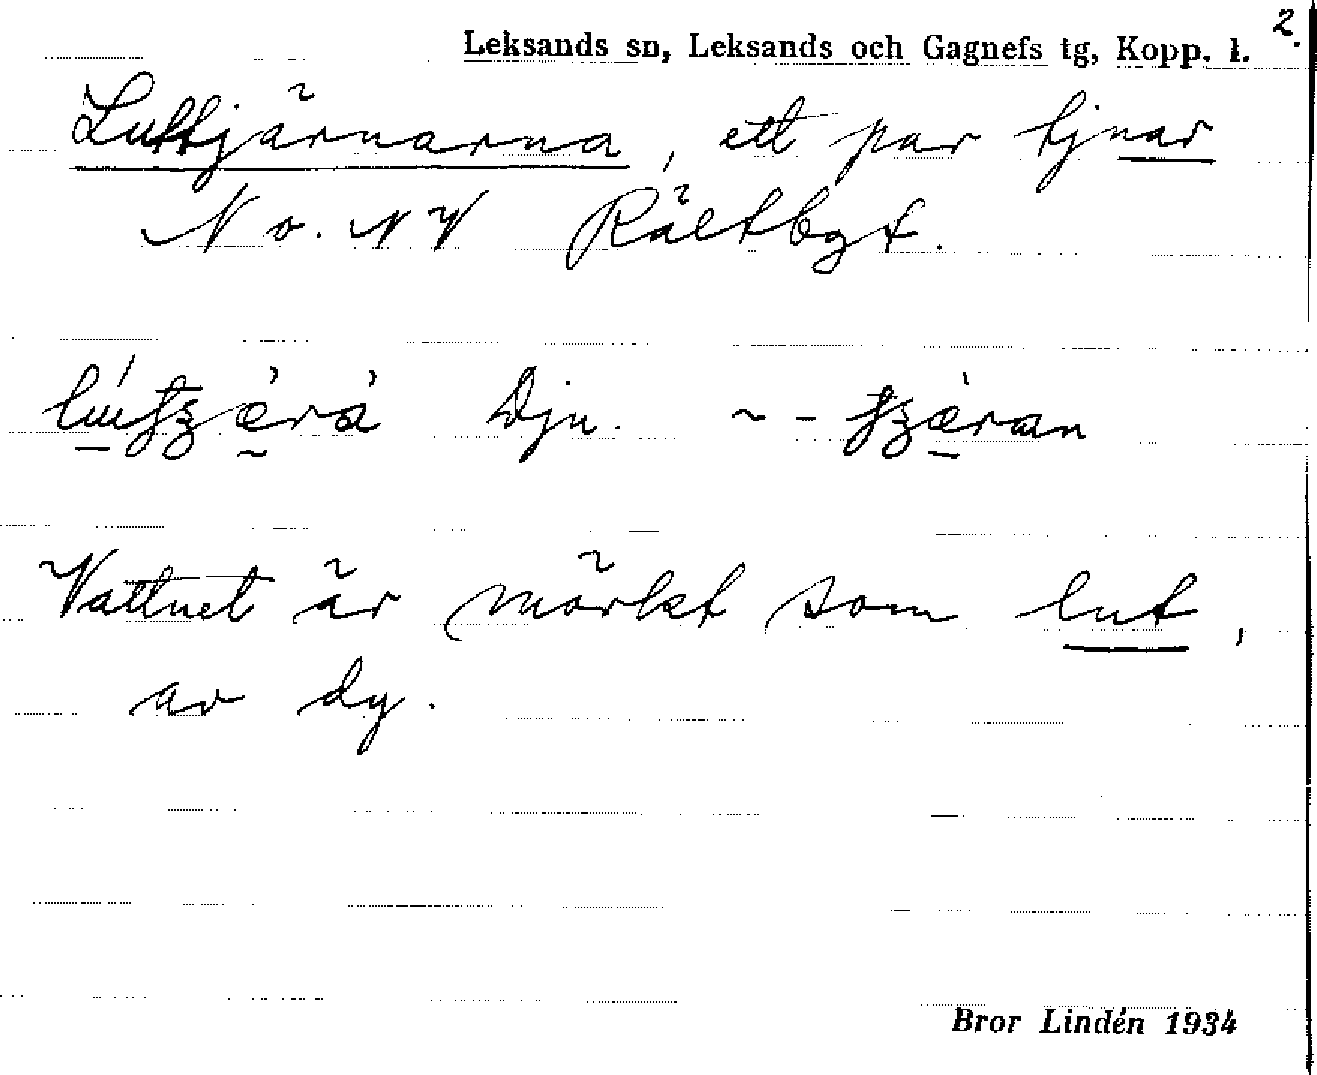 2.
Leksands sn, Leksands och Gagnefs tg, Kopp. l.
Luttjärnarna, ett par tjnar
N o. NV Rältbgt.
Djn.
Vattnet är mörkt som lut,
av dy.
Bror Lindén 1934